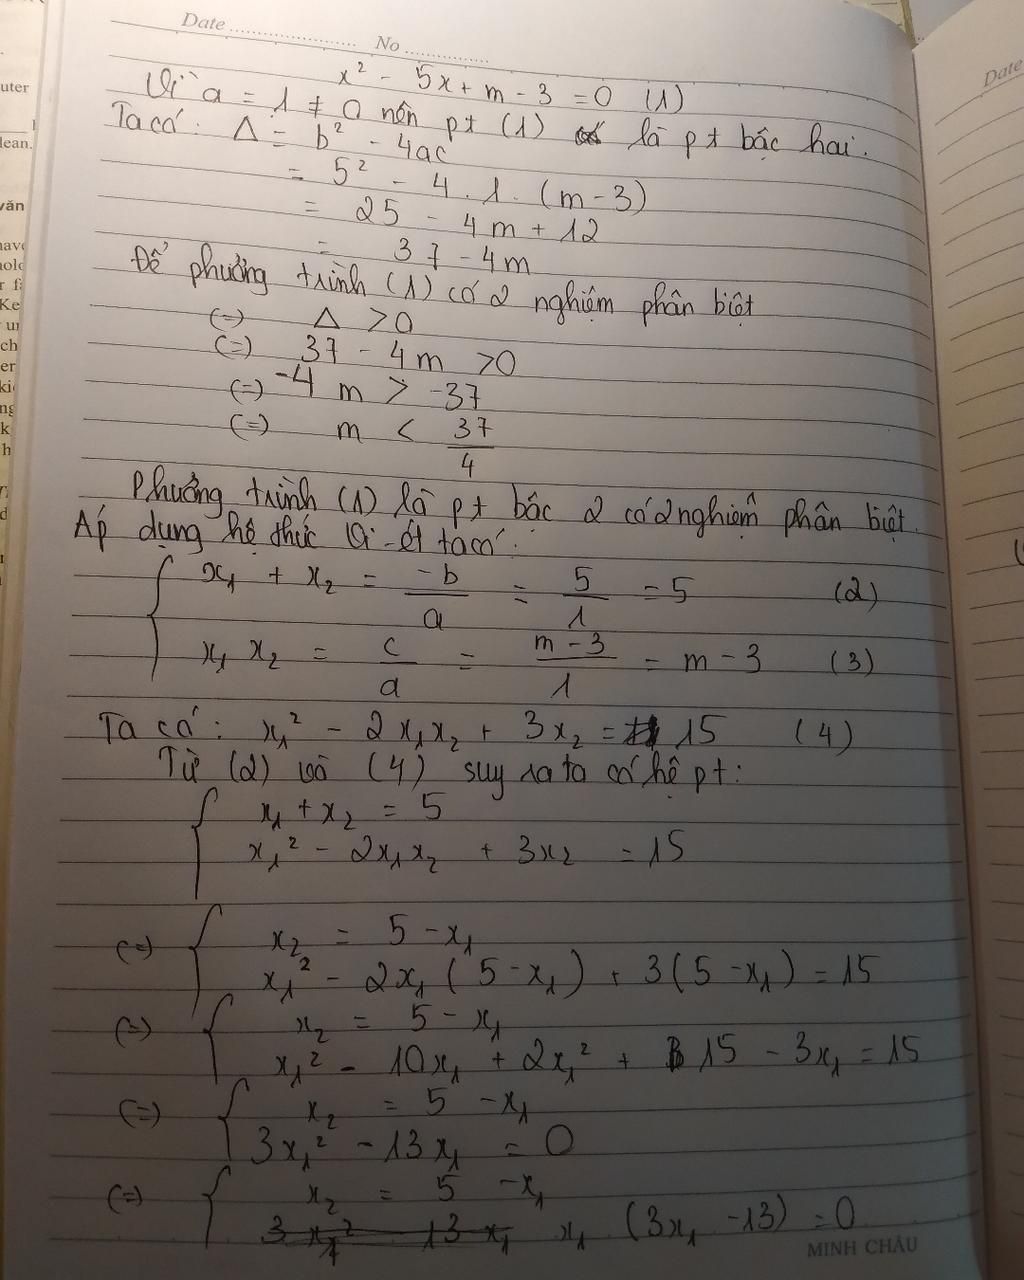 Date ........................ No ................
x² - 5x + m - 3 = 0 (1)
Vì a = 1 ≠ 0 nên pt (1) là pt bậc hai.
Ta có: Δ = b² - 4ac
= 5² - 4 . 1 . (m - 3)
= 25 - 4m + 12
= 37 - 4m
Để phưởng trình (1) có 2 nghiệm phân biệt
(=) Δ > 0
(=) 37 - 4m > 0
(=) -4 m > -37
(=) m < 37/4
Phưởng trình (1) là pt bậc 2 có 2 nghiệm phân biệt.
Áp dụng hệ thức Vi-ét ta có:
x₁ + x₂ = -b/a = 5/1 = 5 (2)
x₁ x₂ = c/a = m - 3/1 = m - 3 (3)
Ta có: x₁² - 2x₁x₂ + 3x₂ = 15 (4)
Từ (2) và (4) suy ra ta có hệ pt:
x₁ + x₂ = 5
x₁² - 2x₁x₂ + 3x₂ = 15
(=) x₂ = 5 - x₁
x₁² - 2x₁ (5 - x₁) + 3(5 - x₁) = 15
(=) x₂ = 5 - x₁
x₁² - 10x₁ + 2x₁² + 15 - 3x₁ = 15
(=) x₂ = 5 - x₁
3x₁² - 13x₁ = 0
(=) x₂ = 5 - x₁
3x₁² - 13x₁ x₁ (3x₁ - 13) = 0
MINH CHÂU
Date
uter
lean.
văn